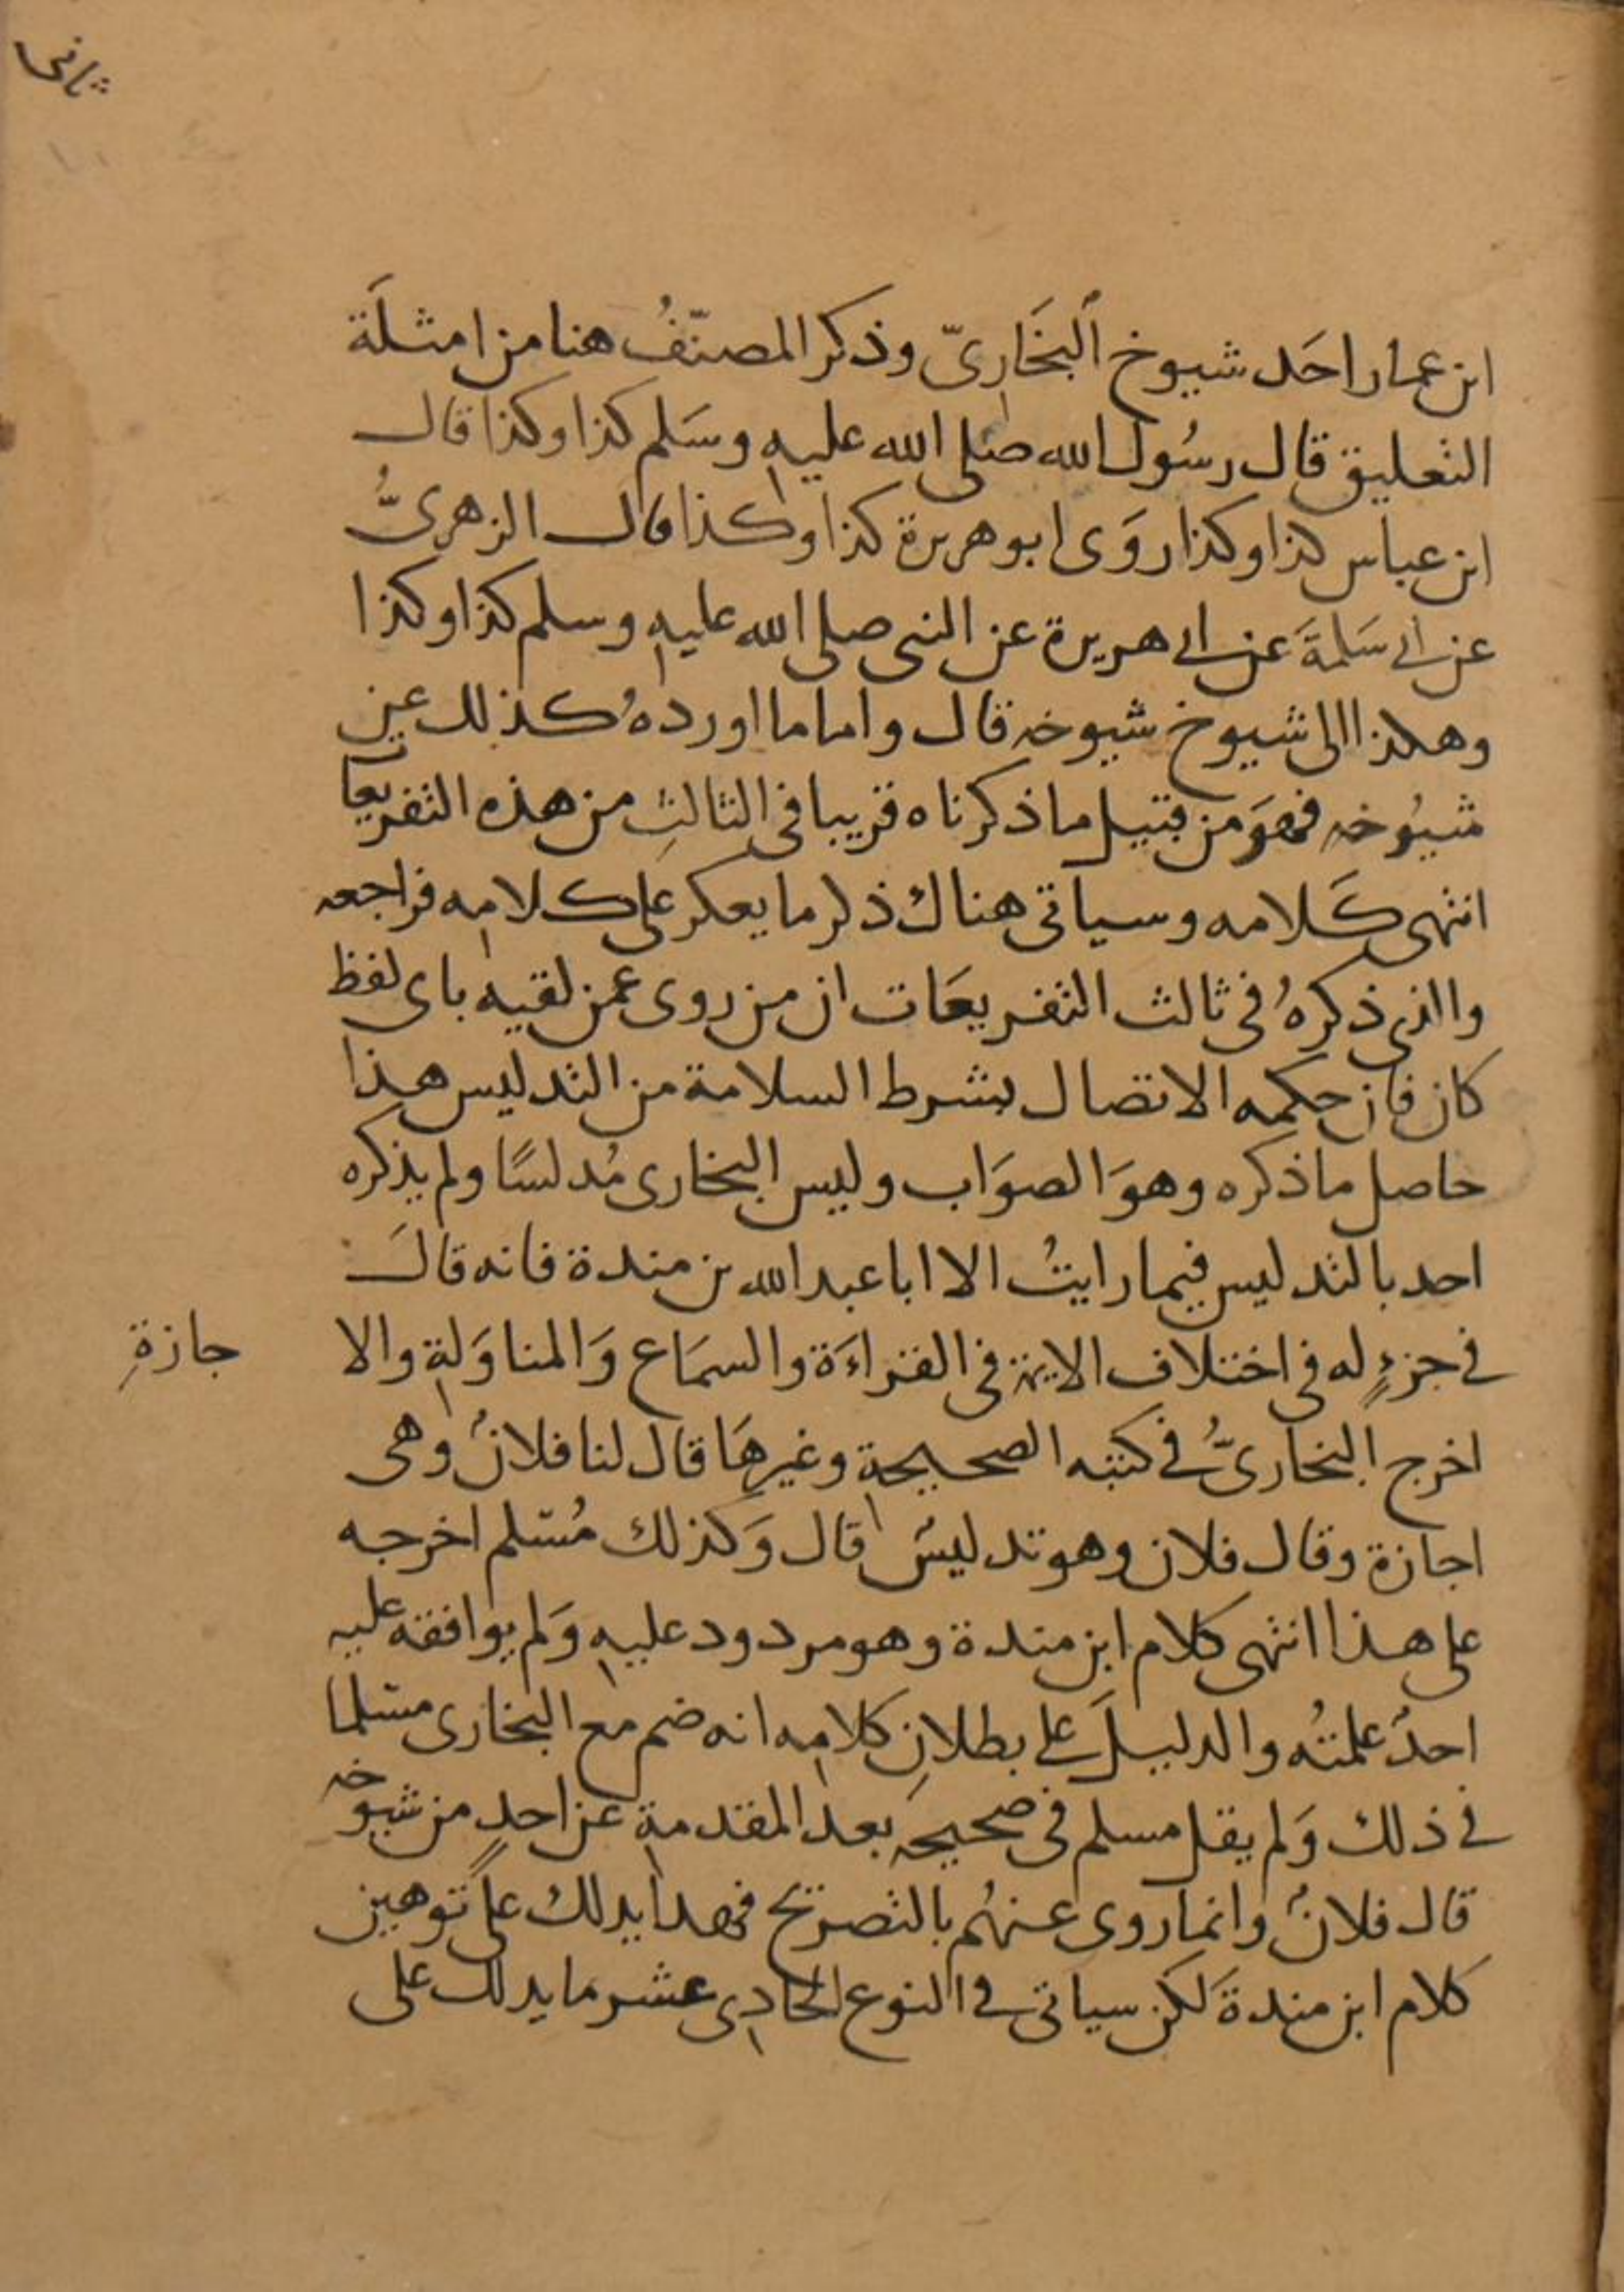 ثانى
ابن عمار احَد شيوخ البخَارىّ وذكر المصنّفُ هنا من امثلَة
التعليق قال رسُول الله صلى الله عليه وسَلم كذا وكذا قال
ابن عباس كذا وكذا روَى ابو هريرة كذا وكذا قال الزهرىُّ
عن ابى سَلمةَ عن ابى هريرة عن النبى صلى الله عليه وسلم كذا وكذا
وهكذا الى شيوخ شيوخه قال واما ما اوردهُ كذلك عن
شيُوخه فهوَ من قبيل ما ذكرناه قريبا فى الثالثِ من هذه التفريعا
انتهى كَلامه وسياتى هناك ذكر ما يعكر على كلامه فراجعه
والذى ذكرهُ فى ثالث التفريعَات ان من روى عمن لقيه باى لفظ
كان فان حكمه الاتصال بشرط السلامة من التدليس هذا
حاصل ما ذكره وهوَ الصوَاب وليس البخارى مُدلسًا ولم يذكره
احد بالتدليس فيما رايتُ الا ابا عبد الله بن مندة فانه قالَ
فى جزءٍ له فى اختلاف الايمة فى القراءَة والسمَاع وَالمناوَلة والا جازةِ
اخرج البخارىُّ فى كتبه الصحيحة وغيرهَا قال لنا فلانٌ وهى
اجازة وقال فلان وهو تدليسٌ قال وَكذلك مُسلم اخرجه
على هذا انتهى كلام ابن مندة وهو مردود عليه وَلم يوافقه عليه
احدٌ علمتُه والدليلَ على بطلانِ كلامه انه ضم مع البخارى مسلما
فى ذلك وَلم يقل مسلم فى صحيحه بَعد المقدمة عن احدٍ من شيوخه
قال فلانٌ وانما روى عنهُم بالتصريح فهذا يدلك على توهين
كلام ابن مندةَ لكن سياتى فى النوع الحادى عشر ما يدلك على